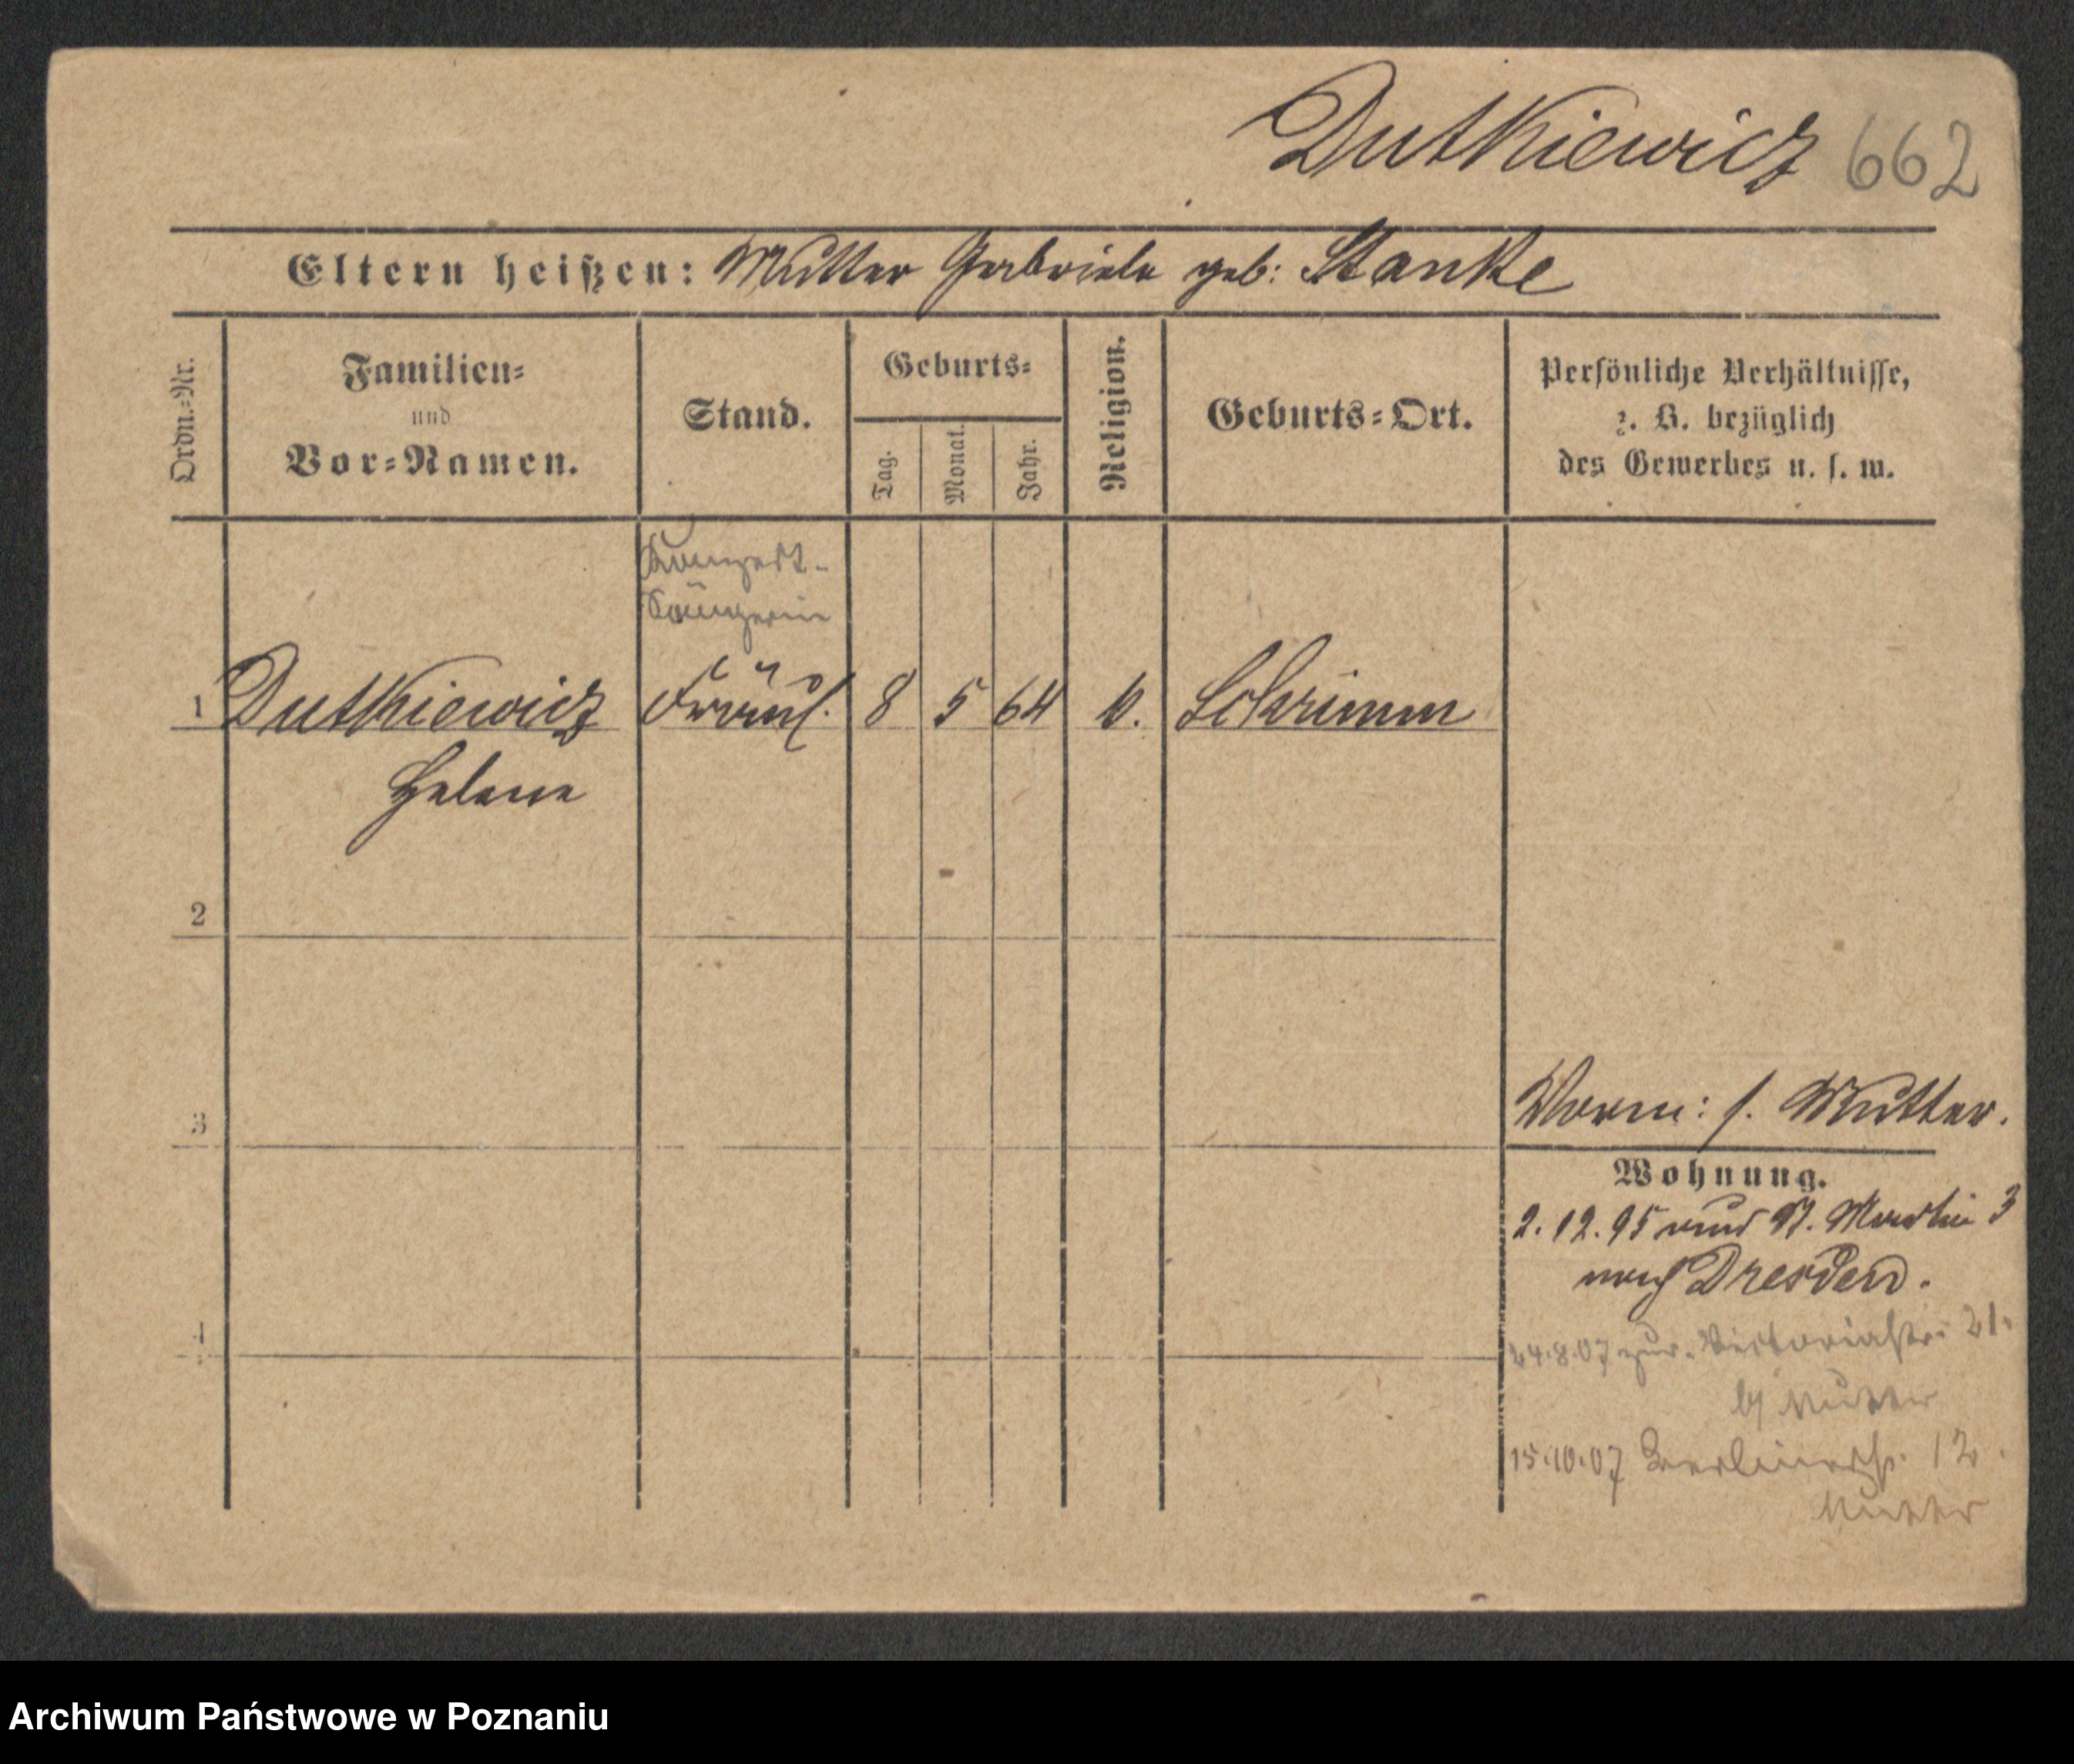 Dutkiewicz 662
Eltern heißen: Mutter Gabriele geb: Stanke
Ordn.=Nr.
Familien=
und
Vor=Namen.
Stand.
Geburts=
Tag.
Monat.
Jahr.
Religion.
Geburts=Ort.
Persönliche Verhältnisse,
z. B. bezüglich
des Gewerbes u. s. w.
Konzert-
Sängerin
1 Dutkiewicz Fräul. 8 5 64 k. Schrimm
Helene
2
3
Vorm: s. Mutter.
Wohnung.
2.12.95 St. Martin 3
nach Dresden.
4
24.8.07 zur. Victoriastr. 21.
b/ Mutter
15.10.07 Berlinerstr. 12.
Mutter
Archiwum Państwowe w Poznaniu